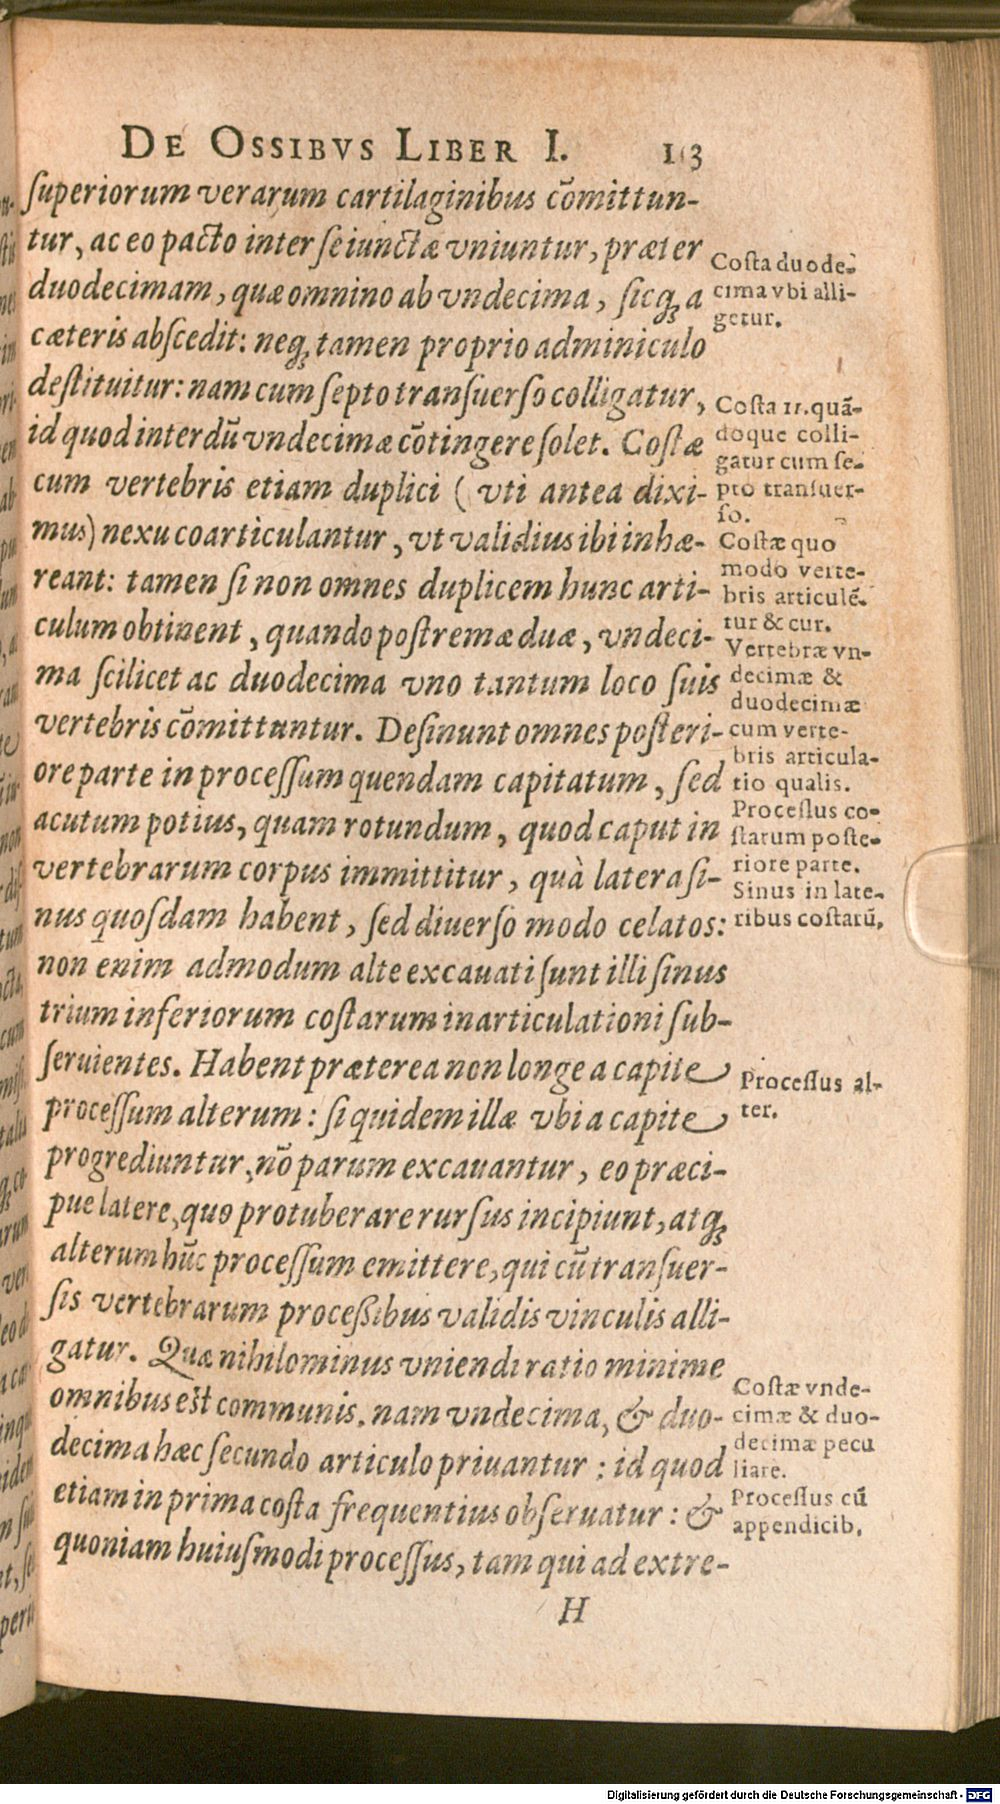 DE OSSIBVS LIBER I. 113
superiorum verarum cartilaginibus cōmittun-
tur, ac eo pacto inter se iunctæ vniuntur, præter
duodecimam, quæ omnino ab vndecima, sicq; a
cæteris abscedit: neq; tamen proprio adminiculo
destituitur: nam cum septo transuerso colligatur,
id quod interdū vndecimæ cōtingere solet. Costæ
cum vertebris etiam duplici (vti antea dixi-
mus) nexu coarticulantur, vt validius ibi inhæ-
reant: tamen si non omnes duplicem hunc arti-
culum obtinent, quando postremæ duæ, vndeci-
ma scilicet ac duodecima vno tantum loco suis
vertebris cōmittuntur. Desinunt omnes posteri-
ore parte in processum quendam capitatum, sed
acutum potius, quam rotundum, quod caput in
vertebrarum corpus immittitur, quà latera si-
nus quosdam habent, sed diuerso modo celatos:
non enim admodum alte excauati sunt illi sinus
trium inferiorum costarum inarticulationi sub-
seruientes. Habent præterea non longe a capite
processum alterum: siquidem illæ vbi a capite
progrediuntur, nō parum excauantur, eo præci-
pue latere, quo protuberare rursus incipiunt, atq;
alterum hūc processum emittere, qui cū transuer-
sis vertebrarum processibus validis vinculis alli-
gatur. Quæ nihilominus vniendi ratio minime
omnibus est communis. nam vndecima, & duo-
decima hæc secundo articulo priuantur: id quod
etiam in prima costa frequentius obseruatur: &
quoniam huiusmodi processus, tam qui ad extre-
H
Costa duode-
cima vbi alli-
getur.
Costa 11. quā-
doque colli-
gatur cum se-
pto transuer-
so.
Costæ quo
modo verte-
bris articulē-
tur & cur.
Vertebræ vn-
decimæ &
duodecimæ
cum verte-
bris articula-
tio qualis.
Processus co-
starum poste-
riore parte.
Sinus in late-
ribus costarū.
Processus al-
ter.
Costæ vnde-
cimæ & duo-
decimæ pecu
liare.
Processus cū
appendicib.
Digitalisierung gefördert durch die Deutsche Forschungsgemeinschaft - DFG